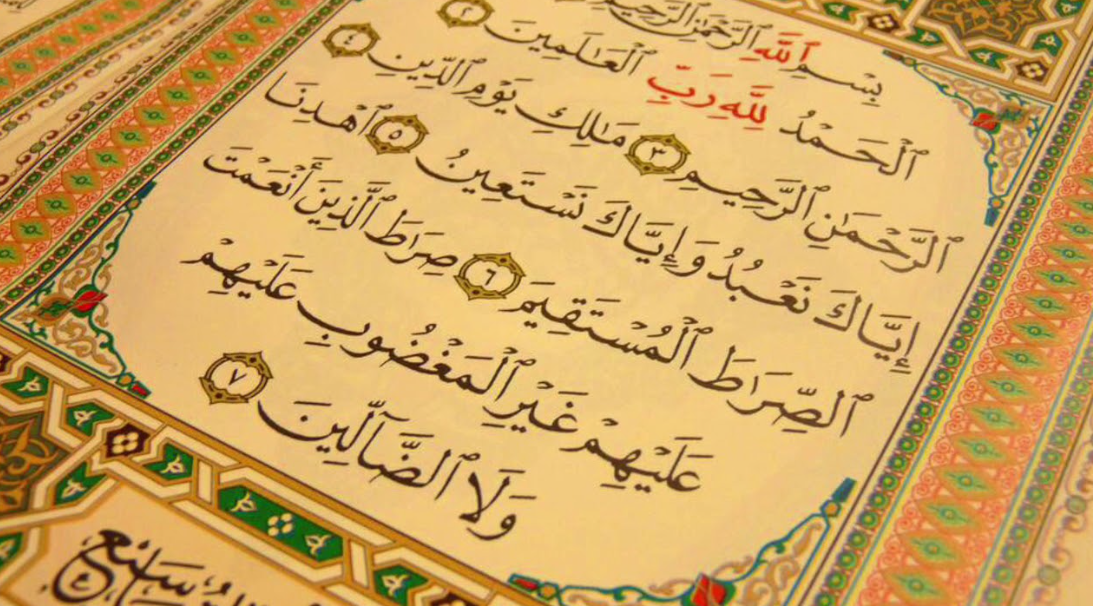 بِسْمِ ٱللَّهِ ٱلرَّحْمَٰنِ ٱلرَّحِيمِ
ٱلْحَمْدُ لِلَّهِ رَبِّ ٱلْعَٰلَمِينَ ٢
ٱلرَّحْمَٰنِ ٱلرَّحِيمِ ٣ مَٰلِكِ يَوْمِ ٱلدِّينِ ٤
إِيَّاكَ نَعْبُدُ وَإِيَّاكَ نَسْتَعِينُ ٥ ٱهْدِنَا
ٱلصِّرَٰطَ ٱلْمُسْتَقِيمَ ٦ صِرَٰطَ ٱلَّذِينَ أَنْعَمْتَ
عَلَيْهِمْ غَيْرِ ٱلْمَغْضُوبِ عَلَيْهِمْ
وَلَا ٱلضَّآلِّينَ ٧